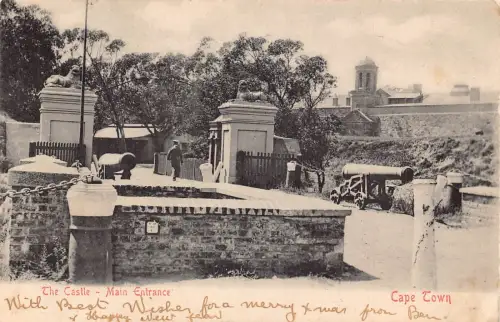 The Castle - Main Entrance
Cape Town
With Best Wishes for a merry Xmas from Ben
& Happy New Year